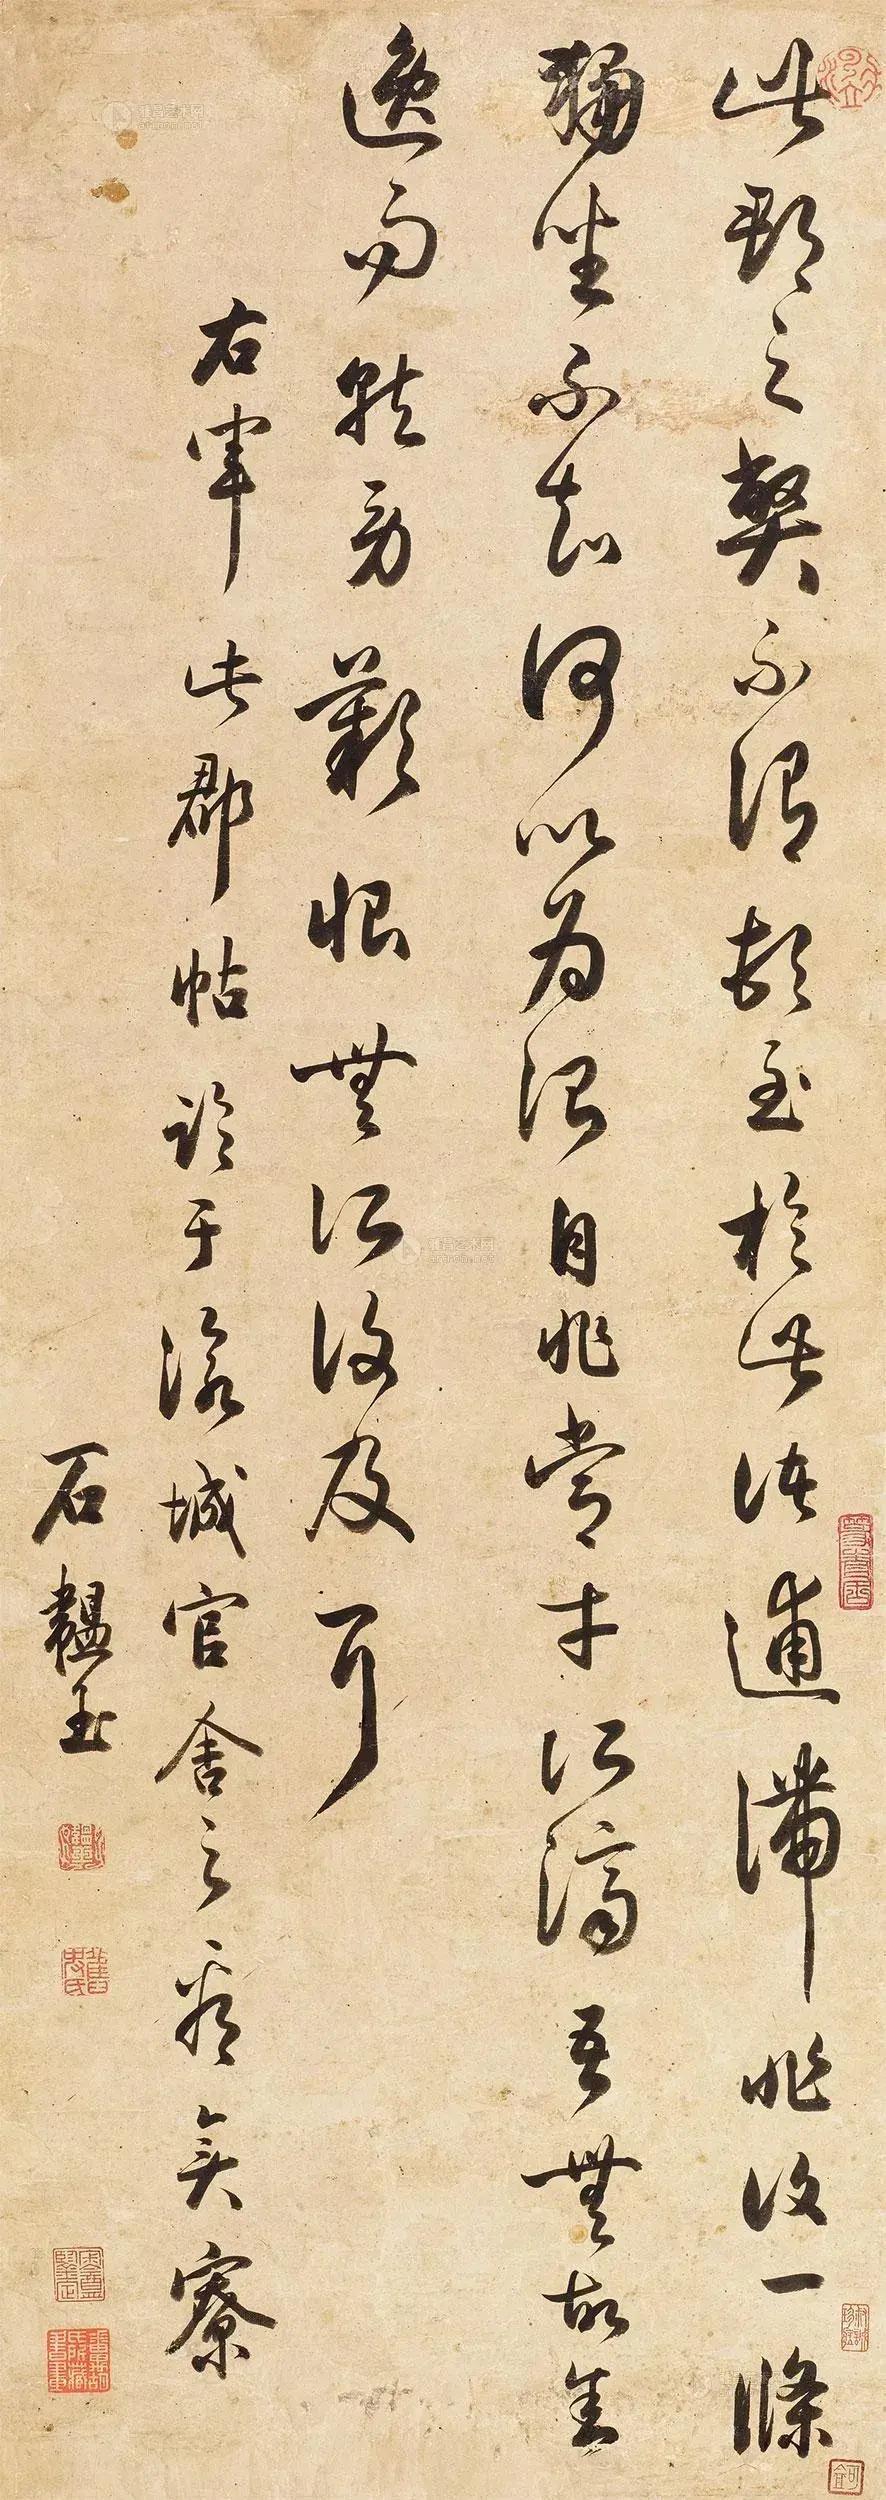 此郡之獘不謂頓至於此諸逋滯非復一條
獨坐不知何以為治自非常才所濟吾無故舍
逸而就勞歎恨無所復及耳
右軍此郡帖臨于渝城官舍之看奕寮
石韞玉